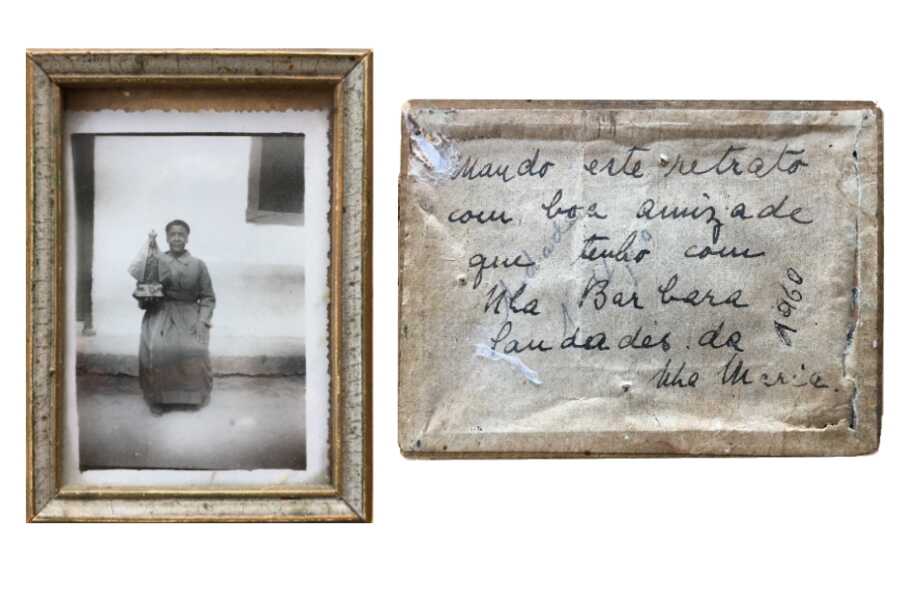 Mando este retrato
com boa amizade
que tenho com
Nha Barbara
Saudades da
Nha Maria.
1960